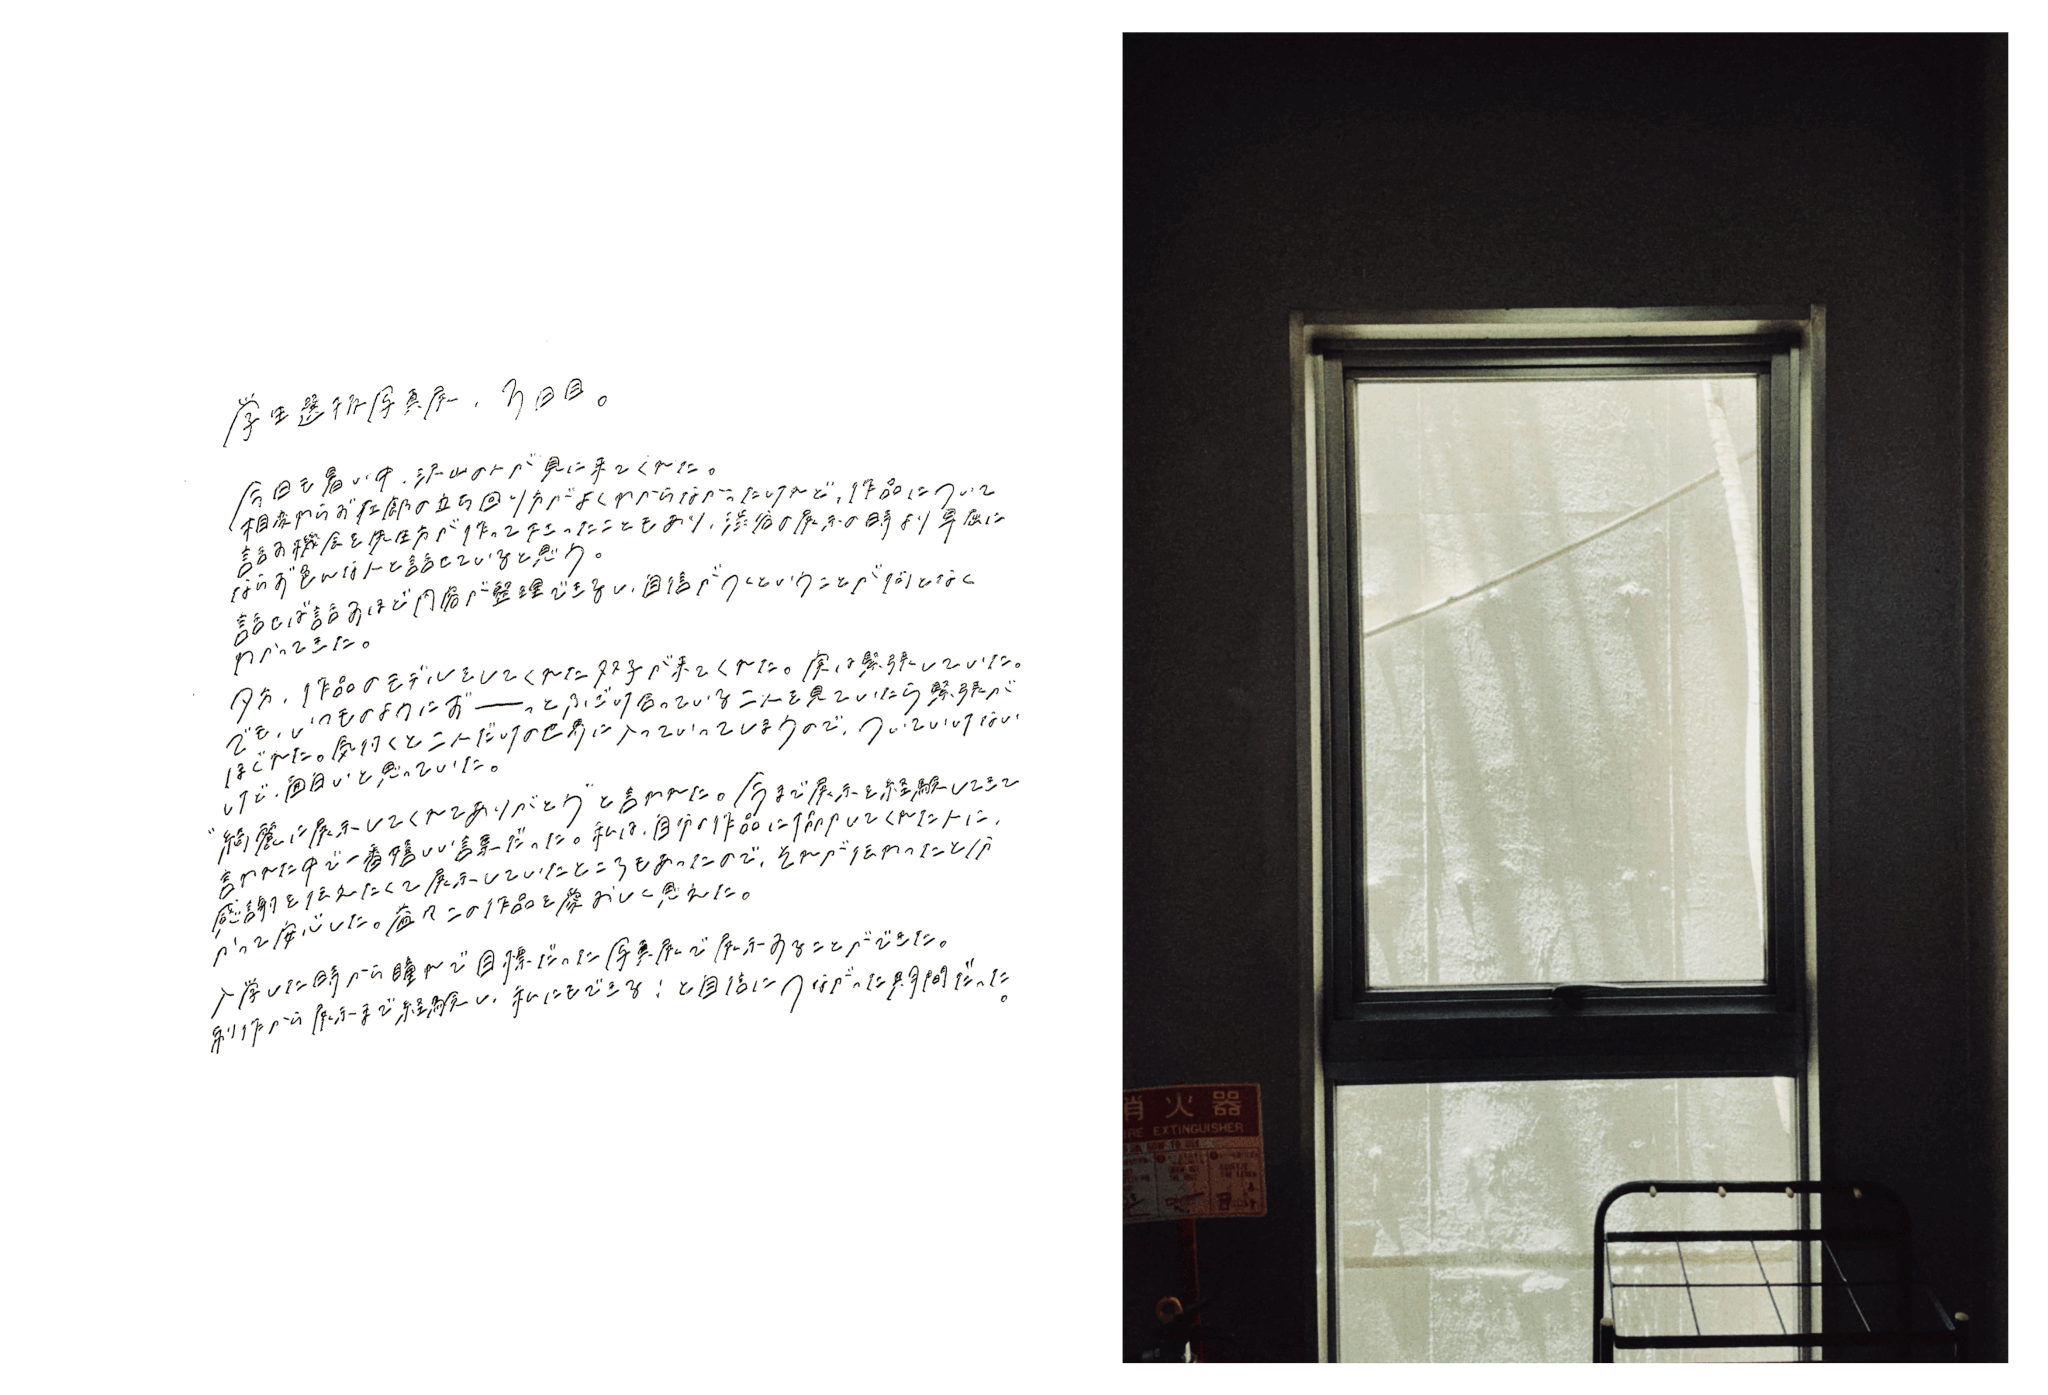 学生選抜写真展、3日目。
今日も暑い中、沢山の人が見に来てくれた。
相変わらず在廊の立ち回り方がよくわからなかったけれど、作品について
話す機会を先生方が作って下さったこともあり、渋谷の展示の時より卑屈に
ならず色んな人と話せていると思う。
話せば話すほど内容が整理できるし、自信がつくということが何となく
わかってきた。
夕方、作品のモデルをしてくれた双子が来てくれた。実は緊張していた。
でも、いつものようにず――っとふざけ合っている二人を見ていたら緊張が
ほぐれた。気付くと二人だけの世界に入っていってしまうので、ついていけない
けど、面白いと思っていた。
"綺麗に展示してくれてありがとう"と言われた。今まで展示を経験してきて
言われた中で一番嬉しい言葉だった。私は、自分の作品に協力してくれた人に、
感謝を伝えたくて展示していたところもあったので、それが伝わったと分
かって安心した。益々この作品を愛おしく思えた。
入学した時から憧れで目標だった写真展で展示することができた。
制作から展示まで経験し、私にもできる!と自信につながった期間だった。
消火器
FIRE EXTINGUISHER